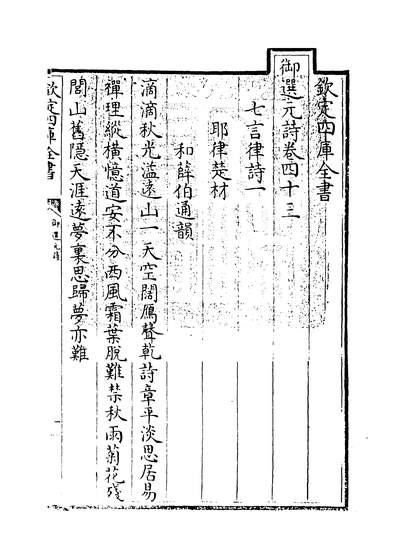 欽定四庫全書
御選元詩卷四十三
七言律詩一
耶律楚材
和薛伯通韻
滴滴秋光溢遠山一天空闊鴈聲乾詩章平淡思居易
禪理縱橫憶道安不分西風霜葉脫難禁秋雨菊花殘
閭山舊隱天涯遠夢裏思歸夢亦難
欽定四庫全書
御選元詩